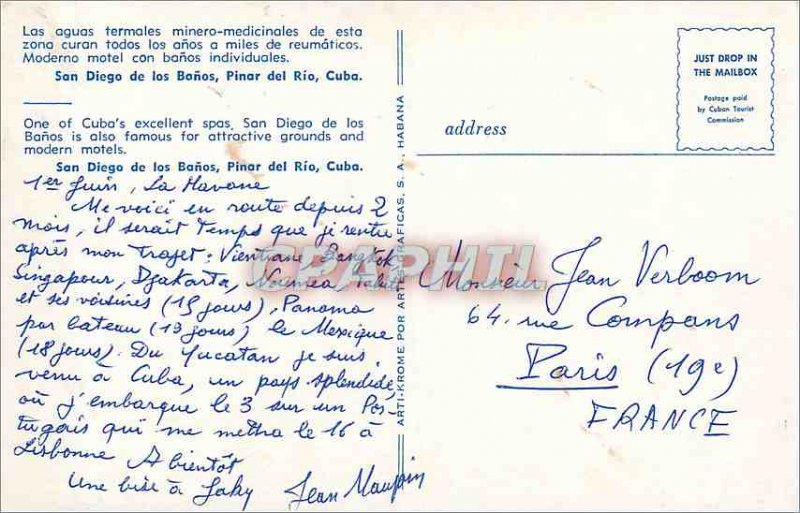 Las aguas termales minero-medicinales de esta
zona curan todos los años a miles de reumáticos.
Moderno motel con baños individuales.
San Diego de los Baños, Pinar del Río, Cuba.
One of Cuba's excellent spas, San Diego de los
Baños is also famous for attractive grounds and
modern motels.
San Diego de los Baños, Pinar del Río, Cuba.
1er Juin, La Havane
Me voici en route depuis 2
mois, il serait temps que je rentre
après mon trajet : Vientiane, Bangkok
Singapour, Djakarta, Nouméa, Tahiti
et ses voisines (15 jours), Panama
par bateau (13 jours), le Mexique
(18 jours). Du Yucatan je suis
venu à Cuba, un pays splendide,
où j'embarque le 3 sur un Por-
tugais qui me mettra le 16 à
Lisbonne A bientôt
Une bise à Jaky Jean Maupoin
ARTI-KROME POR ARTES GRAFICAS, S. A., HABANA
JUST DROP IN
THE MAILBOX
Postage paid
by Cuban Tourist
Commission
address
Monsieur Jean Verboom
64. rue Compans
Paris (19e)
FRANCE
CPARAMA